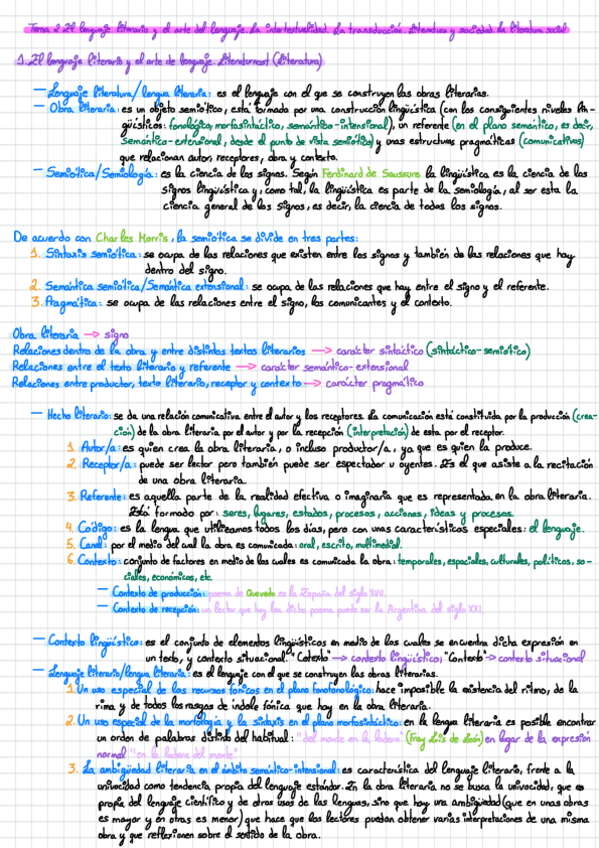 Tema 2 El lenguaje literario y el arte del lenguaje. La intertextualidad. La transducción. Literatura y sociedad la literatura social
1. El lenguaje literario y el arte de lenguaje. Literaturnost (Literatura)
— Lenguaje literatura/lengua literaria: es el lenguaje con el que se construyen las obras literarias.
— Obra literaria: es un objeto semiótico, está formada por una construcción lingüística (con los consiguientes niveles lin-
güísticos: fonológico, morfosintáctico, semántico-intensional), un referente (en el plano semántico, es decir,
semántico-extensional, desde el punto de vista semiótico) y unas estructuras pragmáticas (comunicativas)
que relacionan autor, receptores, obra y contexto.
— Semiótica/Semiología: es la ciencia de los signos. Según Ferdinard de Saussure la lingüística es la ciencia de los
signos lingüística y, como tal, la lingüística es parte de la semiología, al ser esta la
ciencia general de los signos, es decir, la ciencia de todos los signos.
De acuerdo con Charles Morris, la semiótica se divide en tres partes:
1. Sintaxis semiótica: se ocupa de las relaciones que existen entre los signos y también de las relaciones que hay
dentro del signo.
2. Semántica semiótica/Semántica extensional: se ocupa de las relaciones que hay entre el signo y el referente.
3. Pragmática: se ocupa de las relaciones entre el signo, los comunicantes y el contexto.
Obra literaria → signo
Relaciones dentro de la obra y entre distintos textos literarios → carácter sintáctico (sintáctico-semiótico)
Relaciones entre el texto literario y referente → carácter semántico-extensional
Relaciones entre productor, texto literario, receptor y contexto → carácter pragmático
— Hecho literario: se da una relación comunicativa entre el autor y los receptores. La comunicación está constituida por la producción (crea-
ción) de la obra literaria por el autor y por la recepción (interpretación) de esta por el receptor.
1. Autor/a: es quien crea la obra literaria, o incluso productor/a, ya que es quien la produce.
2. Receptor/a: puede ser lector pero también puede ser espectador u oyentes. Es el que asiste a la recitación
de una obra literaria.
3. Referente: es aquella parte de la realidad efectiva o imaginaria que es representada en la obra literaria.
Está formado por: seres, lugares, estados, procesos, acciones, ideas y procesos.
4. Código: es la lengua que utilizamos todos los días, pero con unas características especiales: el lenguaje.
5. Canal: por el medio del cual la obra es comunicada: oral, escrito, multimedial.
6. Contexto: conjunto de factores en medio de los cuales es comunicada la obra: temporales, espaciales, culturales, políticos, so-
ciales, económicos, etc
— Contexto de producción: poema de Quevedo es la España del siglo XVII.
— Contexto de recepción: un lector que hoy lea dicho poema puede ser la Argentina del siglo XXI.
— Contexto lingüístico: es el conjunto de elementos lingüísticos en medio de los cuales se encuentra dicha expresión en
un texto, y contexto situacional. "Cotexto" → contexto lingüístico; "Contexto" → contexto situacional
— Lenguaje literario/lengua literaria: es el lenguaje con el que se construyen las obras literarias.
1. Un uso especial de los recursos fónicos en el plano fonofonológico: hace imposible la existencia del ritmo, de la
rima y de todos los rasgos de índole fónica que hay en la obra literaria.
2. Un uso especial de la morfología y la sintaxis en el plano morfosintáctico: en la lengua literaria es posible encontrar
un orden de palabras distinto del habitual: "del monte en la ladera" (Fray Luis de León) en lugar de la expresión
normal "en la ladera del monte"
3. La ambigüedad literaria en el ámbito semántico-intensional: es característica del lenguaje literario, frente a la
univocidad como tendencia propia del lenguaje estándar. En la obra literaria no se busca la univocidad, que es
propia del lenguaje científico y de otros usos de las lenguas, sino que hay una ambigüedad (que en unas obras
es mayor y en otras es menor) que hace que los lectores puedan obtener varias interpretaciones de una misma
obra y que reflexionen sobre el sentido de la obra.